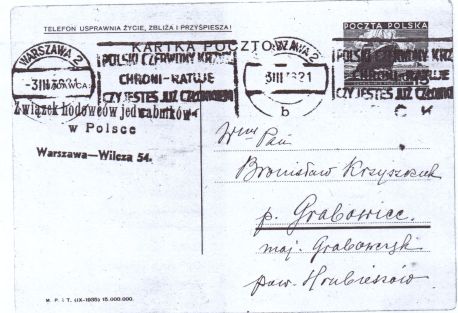 TELEFON USPRAWNIA ŻYCIE, ZBLIŻA I PRZYŚPIESZA!
POCZTA POLSKA
KARTKA POCZTO
WARSZAWA 2
-3III
POLSKI CZERWONY KRZ
CHRONI-RATUJE
CZY JESTEŚ JUŻ CZŁONKIEM
3III 21
b
POLSKI CZERWONY KRZ
CHRONI-RATUJE
CZY JESTEŚ JUŻ CZŁONK
Związek hodowców jedwabników
w Polsce
Warszawa—Wilcza 54.
Pan
Bronisław Krzyszczuk
p. Grabowiec
maj. Grabowczyk
pow. Hrubieszów
M. P. i T. (IX-1935) 15.000.000.